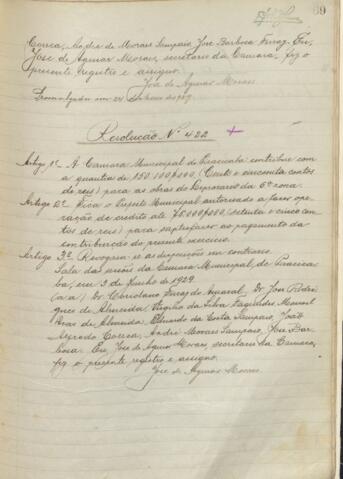 69
Correa, André de Moraes Sampaio, José Barbosa Ferraz. Eu,
José de Aguiar Moraes, secretario da Camara, fiz o
presente registro e assigno.
José de Aguiar Moraes
Promulgada em 24 de 1929.
Resolução Nº 422
Artigo 1º A Camara Municipal de Piracicaba contribue com
a quantia de 150:000$000 (Cento e cincoenta contos
de reis) para as obras do Leprosario da 5ª zona.
Artigo 2º Fica o Prefeito Municipal autorizado a fazer ope-
ração de credito até 75:000$000 (setenta e cinco con-
tos de reis) para satisfazer ao pagamento da
contribuição do presente exercicio.
Artigo 3º Revogam-se as disposições em contrario.
Sala das sessões da Camara Municipal, de Piracica-
ba, em 3 de Junho de 1929.
(a.a) Dr. Coriolano Ferraz do Amaral, Dr. José Rodri-
gues de Almeida, da Silva Fagundes, Manoel
de Almeida, Eduardo da Costa Sampaio, João
Alfredo Correa, André Moraes Sampaio, José Bar-
bosa. Eu, José de Aguiar Moraes, secretario da Camara,
fiz o presente registro e assigno.
José de Aguiar Moraes